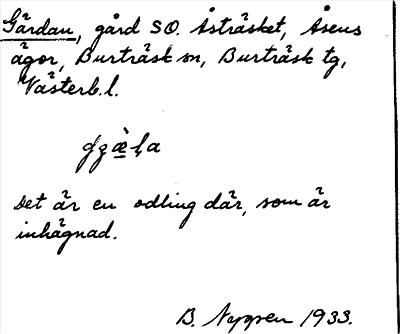 Gärdan, gård SO. Åsträsket, Åsens
ägor, Burträsk sn, Burträsk tg,
Västerb.l.
Det är en odling där, som är
inhägnad.
B. Nygren 1933.